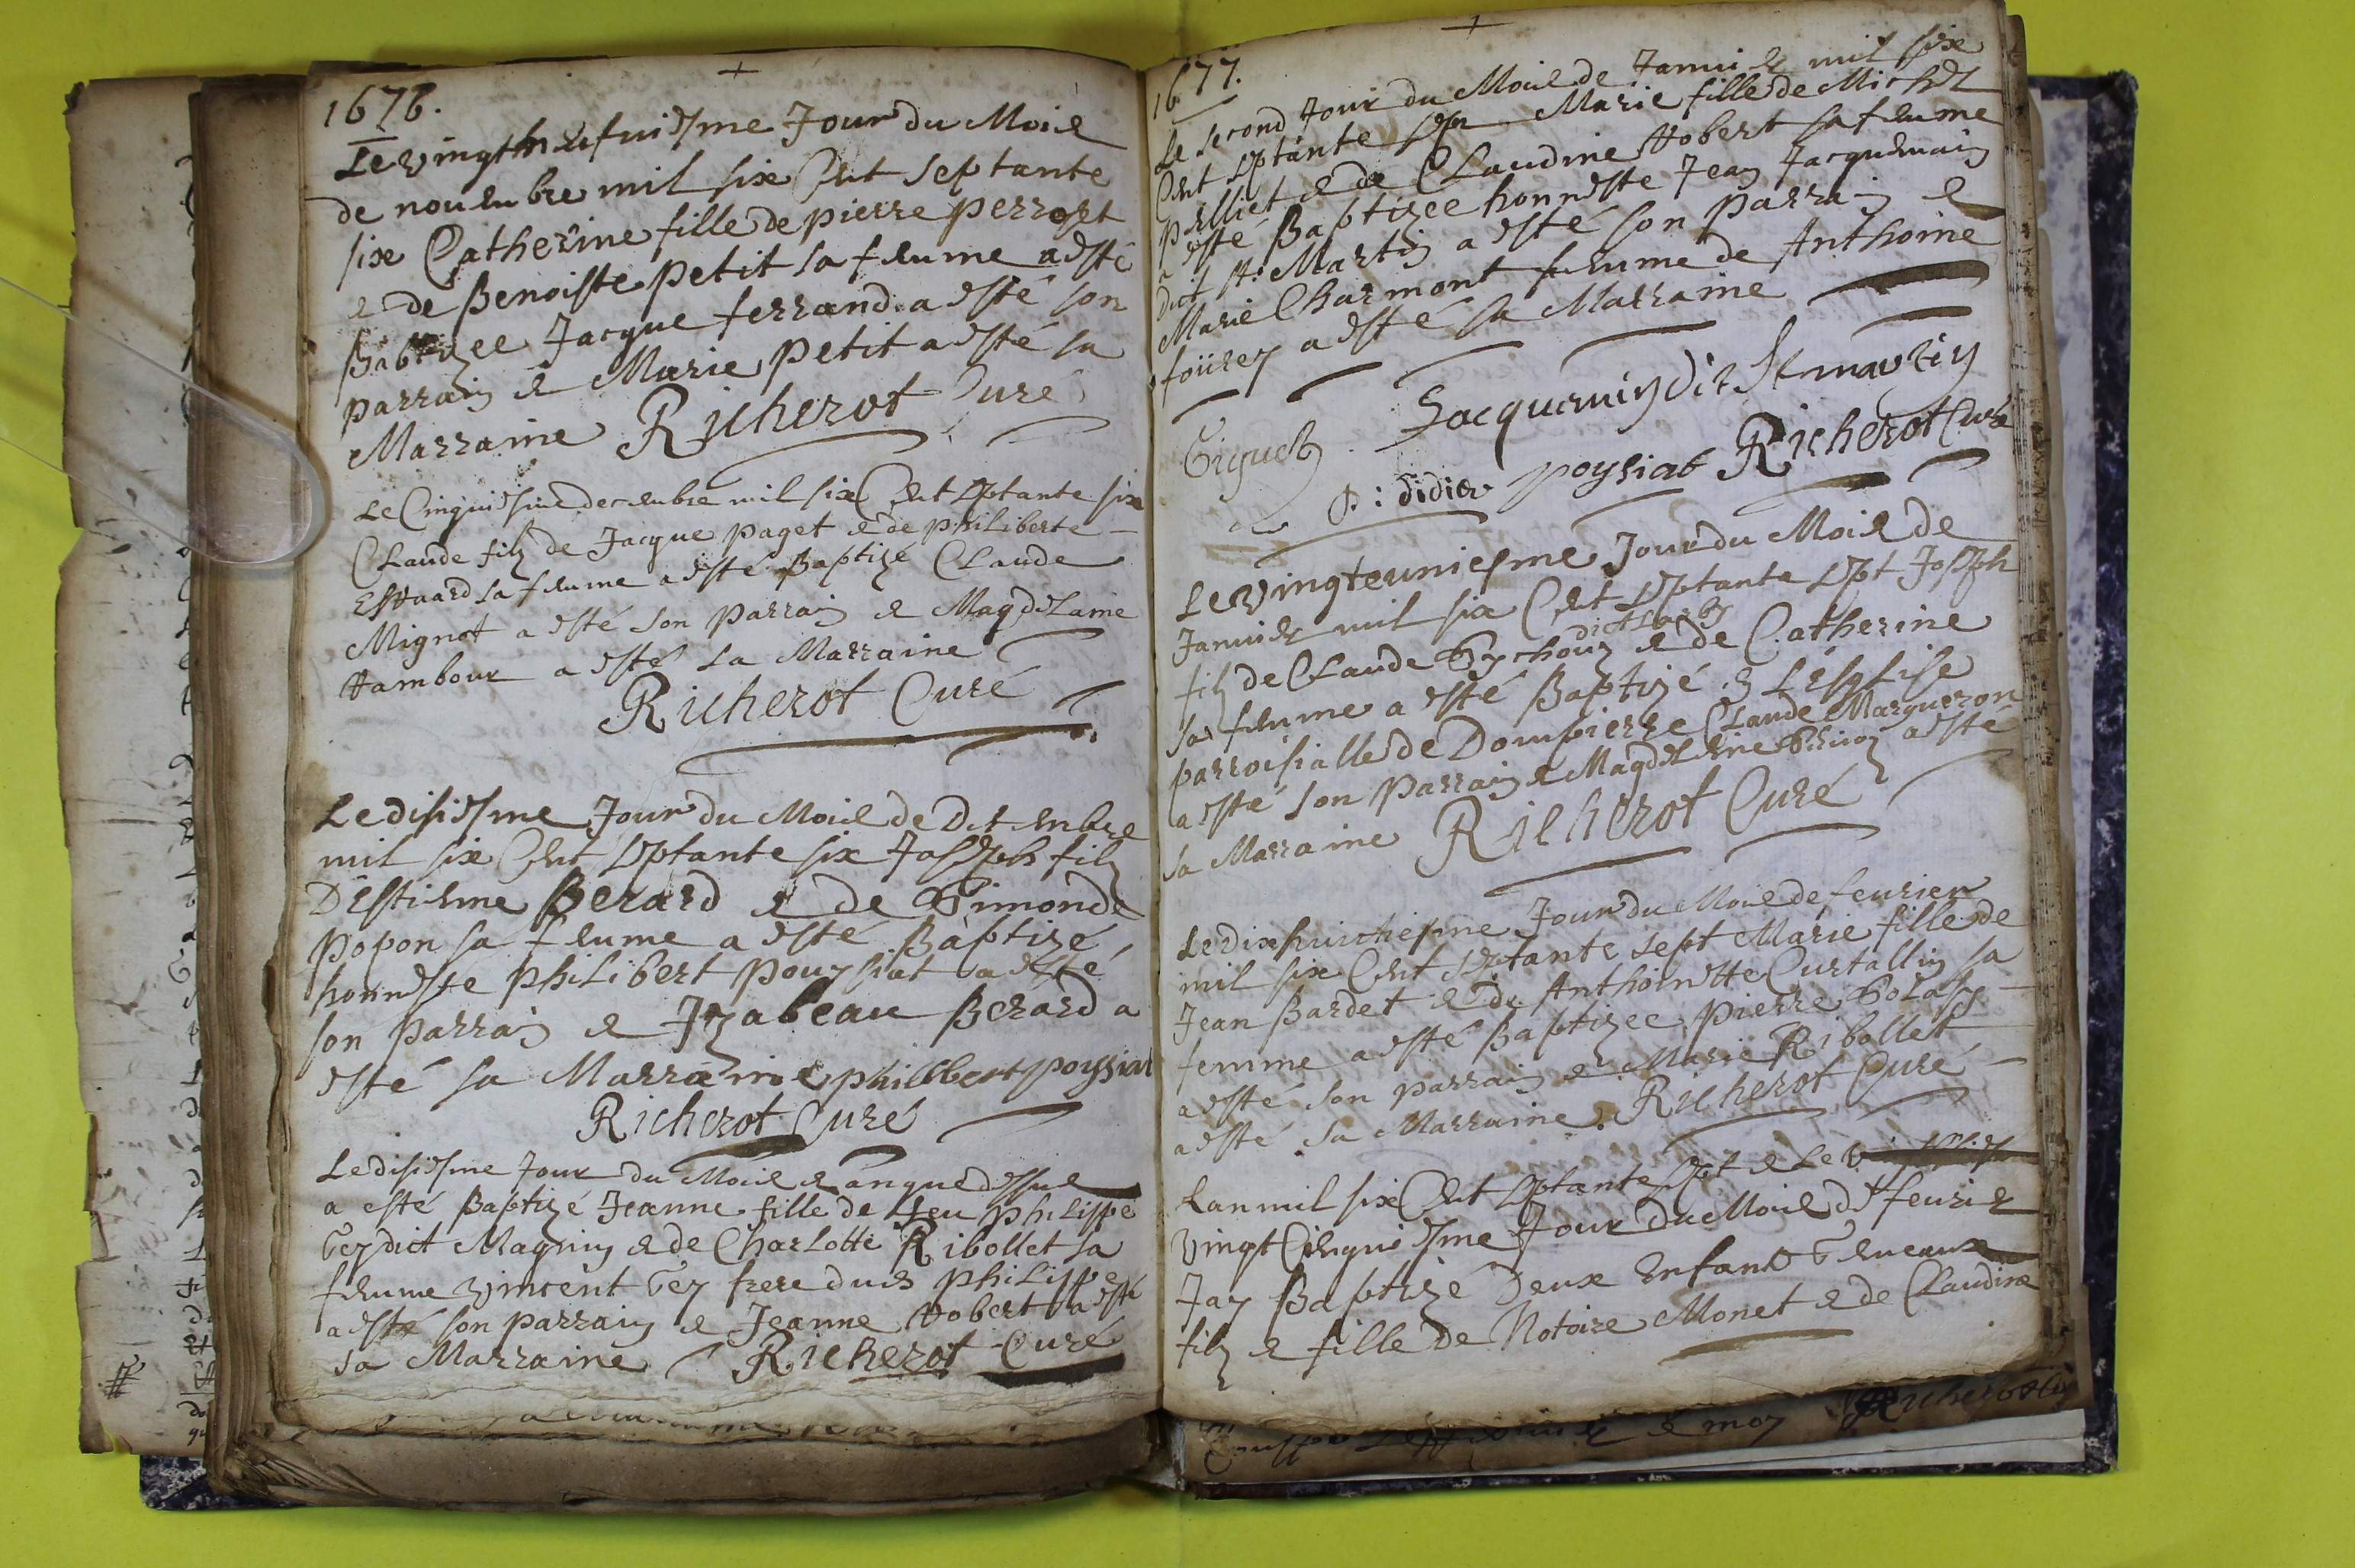 1676.
Le vingtneufuiesme Jour du Mois
de nouembre mil six Cent septante
six Catherine fille de pierre perrozt
& de Benoiste petit sa femme a esté
Babtizee Jacque ferrand a esté son
parrain & Marie petit a esté sa
Marraine Richerot Curé
Le Cinquiesme decembre mil six Cent septante six
Claude filz de Jacque paget & de philiberte
sa femme a esté Baptizé Claude
Mignot a esté son parrain & Magdelaine
tambour a esté sa Marraine
Richerot Curé
Le disiesme Jour du Mois de Decembre
mil six Cent septante six Joseph filz
D'Estienne Berard & de Pimonde
popon sa femme a esté Baptizé
honneste philibert pouysiat a esté
son parrain & Izabeau Berard a
esté sa Marraine philibbert poysiat
Richerot Curé
Le disiesme Jour du Mois & an que dessus
a esté Baptizé Jeanne fille de feu philippe
Gey dict Magnin & de Charlotte Ribollet sa
femme vincent Gey frere dud philippe
a esté son parrain & Jeanne hobert a esté
sa Marraine Richerot Curé
1677.
Le second Jour du Mois de Januier mil six
Cent septante sept Marie fille de Michel
pelliet & de Claudine hobert sa femme
a esté Baptizee honneste Jean Jacquemain
dict st. Martin a esté son parrain &
Marie Charmont femme de Anthoine
foürey a esté sa Marraine
Jacquemin dit St martin
D: didier poysiat Richerot Curé
Le vingteuniesme Jour du Mois de
Januier mil six Cent septante sept Joseph
dict
filz de Claude & de Catherine
sa femme a esté Baptizé en L'Esglise
parroisialle de Dompierre Claude Margueron
a esté son parrain & Magdeleine a esté
sa Marraine Richerot Curé
Le dixhuictiesme Jour du Mois de feurier
mil six Cent septante sept Marie fille de
Jean Bardet & de Anthoinette Curtallin sa
femme a esté Baptizee pierre
a esté son parrain & Marie Ribollet
a esté sa Marraine. Richerot Curé
Lan mil six Cent septante sept & Le
vingt Cinquiesme Jour du Mois de feurier
Jay Baptizé Deux Enfans Gemeaux
filz & fille de Notoire Monet & de Claudine
& moy Richerot